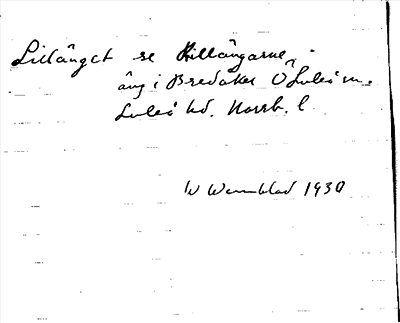 Lillänget se Lillängarne,
äng i Bredåker Ö Luleå sn.
Luleå hd. Norrb. l.
W Wennblad 1930